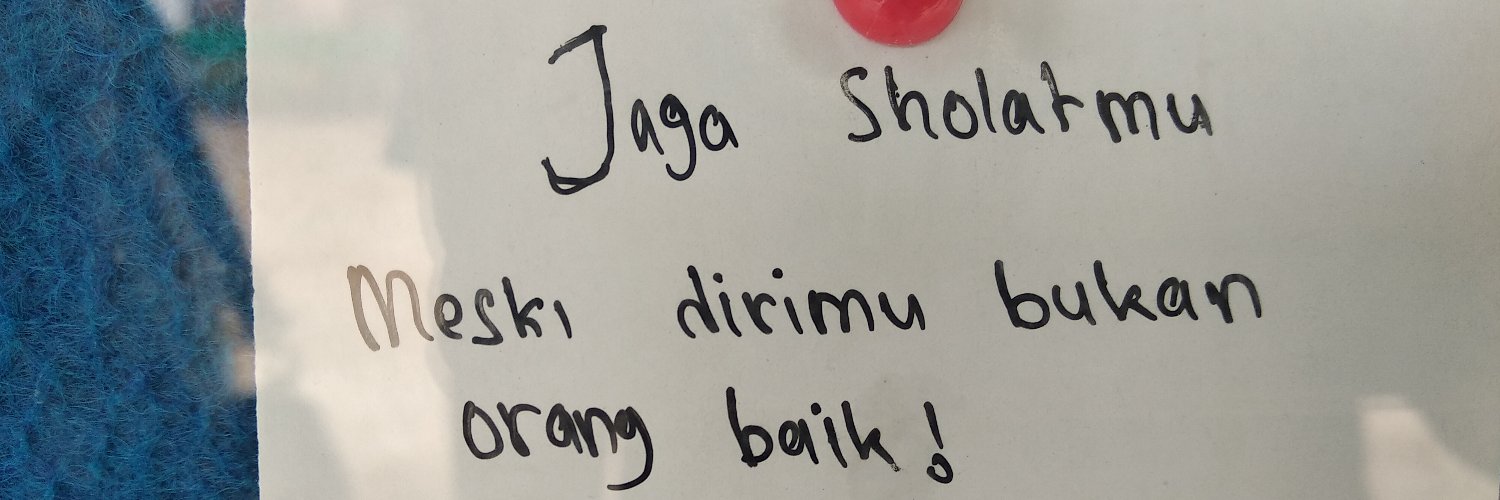 Jaga Sholatmu
Meski dirimu bukan
orang baik!